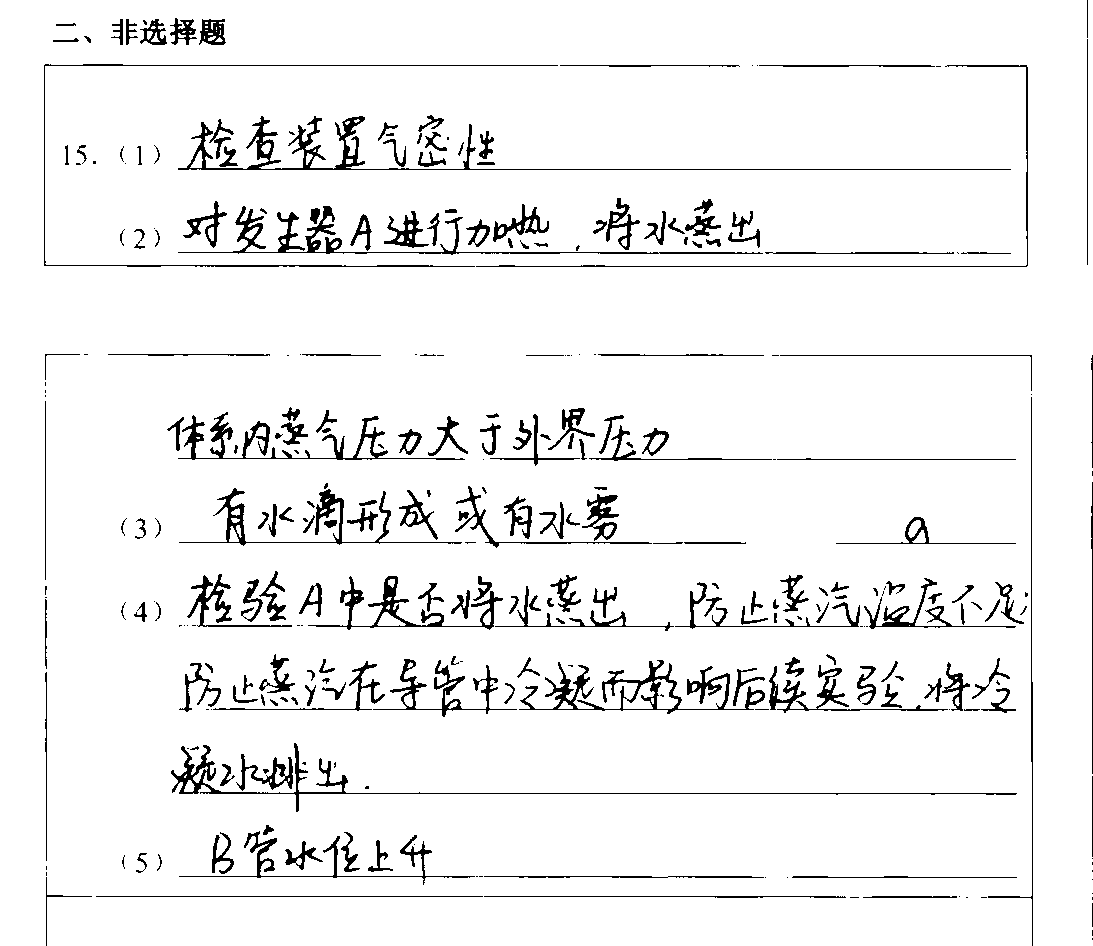 二、非选择题
15.（1）检查装置气密性
（2）对发生器A进行加热，将水蒸出
体系内蒸气压力大于外界压力
（3）有水滴形成或有水雾 a
（4）检验A中是否将水蒸出，防止蒸汽温度不足
防止蒸汽在导管中冷凝而影响后续实验.将冷
凝水排出.
（5）B管水位上升